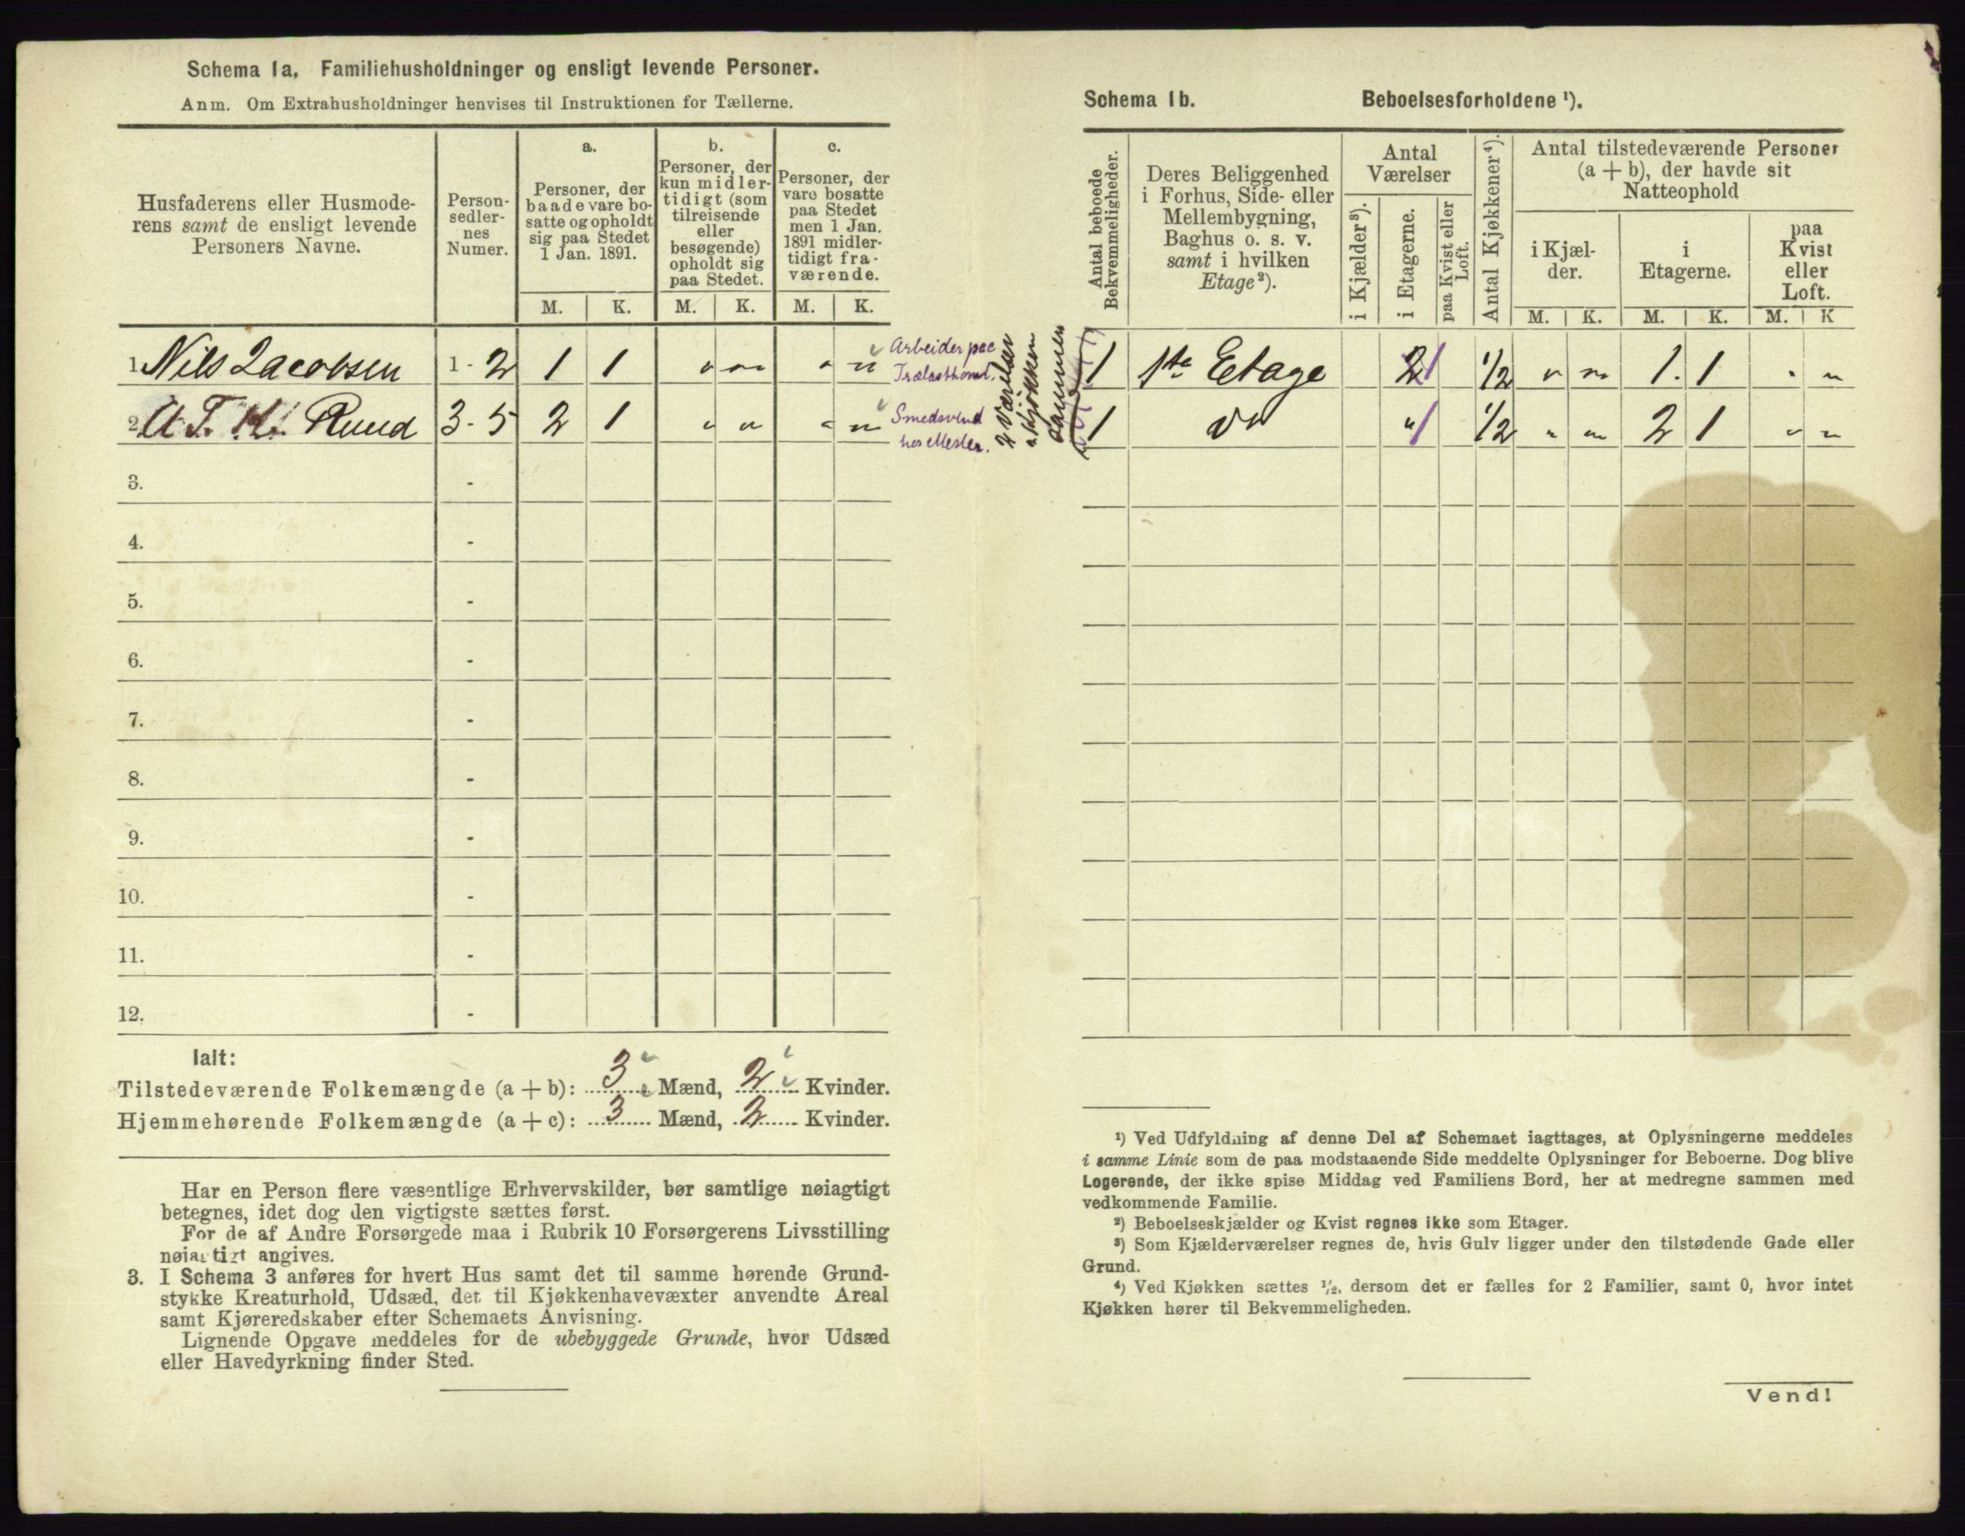 Schema 1a. Familiehusholdninger og ensligt levende Personer.
Anm. Om Extrahusholdninger henvises til Instruktionen for Tællerne.
Husfaderens eller Husmode-
rens samt de ensligt levende
Personers Navne.
Person-
sedler-
nes
Numer.
a.
Personer, der
baade vare bo-
satte og opholdt
sig paa Stedet
1 Jan. 1891.
b.
Personer, der
kun midler-
tidigt (som
tilreisende
eller
besøgende)
opholdt sig
paa Stedet.
c.
Personer, der
vare bosatte
paa Stedet
men 1 Jan.
1891 midler-
tidigt fra-
værende.
M. K. M. K. M. K.
1. Nils Jacobsen 1 - 2 1 1 " " " "
Arbeider paa
2. A. T. H. Ruud 3 - 5 2 1 " " " "
Smedsvend
hos Mester.
3. -
4. -
5. -
6. -
7. -
8. -
9. -
10. -
11. -
12. -
Ialt:
Tilstedeværende Folkemængde (a + b): 3 Mænd, 2 Kvinder.
Hjemmehørende Folkemængde (a + c): 3 Mænd, 2 Kvinder.
Har en Person flere væsentlige Erhvervskilder, bør samtlige nøiagtigt
betegnes, idet dog den vigtigste sættes først.
For de af Andre Forsørgede maa i Rubrik 10 Forsørgerens Livsstilling
nøiagtigt angives.
3. I Schema 3 anføres for hvert Hus samt det til samme hørende Grund-
stykke Kreaturhold, Udsæd, det til Kjøkkenhavevæxter anvendte Areal
samt Kjøreredskaber efter Schemaets Anvisning.
Lignende Opgave meddeles for de ubebyggede Grunde, hvor Udsæd
eller Havedyrkning finder Sted.
2 Værelser
1 Kjøkken
sammen
Schema 1b. Beboelsesforholdene ¹).
Antal beboede
Bekvemmeligheder.
Deres Beliggenhed
i Forhus, Side- eller
Mellembygning,
Baghus o. s. v.
samt i hvilken
Etage²).
Antal
Værelser
i Kjælder³).
i Etagerne.
paa Kvist eller
Loft.
Antal Kjøkkener⁴).
Antal tilstedeværende Personer
(a + b), der havde sit
Natteophold
i Kjæl-
der.
i
Etagerne.
paa
Kvist
eller
Loft.
M. K. M. K. M. K
1 1ste Etage 1 1/2 " " 1 1 " "
1 " 1 1/2 " " 2 1 " "
¹) Ved Udfyldning af denne Del af Schemaet iagttages, at Oplysningerne meddeles
i samme Linie som de paa modstaaende Side meddelte Oplysninger for Beboerne. Dog blive
Logerende, der ikke spise Middag ved Familiens Bord, her at medregne sammen med
vedkommende Familie.
²) Beboelseskjælder og Kvist regnes ikke som Etager.
³) Som Kjælderværelser regnes de, hvis Gulv ligger under den tilstødende Gade eller
Grund.
⁴) Ved Kjøkken sættes ¹/₂, dersom det er fælles for 2 Familier, samt 0, hvor intet
Kjøkken hører til Bekvemmeligheden.
Vend!